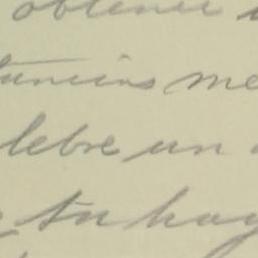 obtener
tancias me
lebre un
tu hay